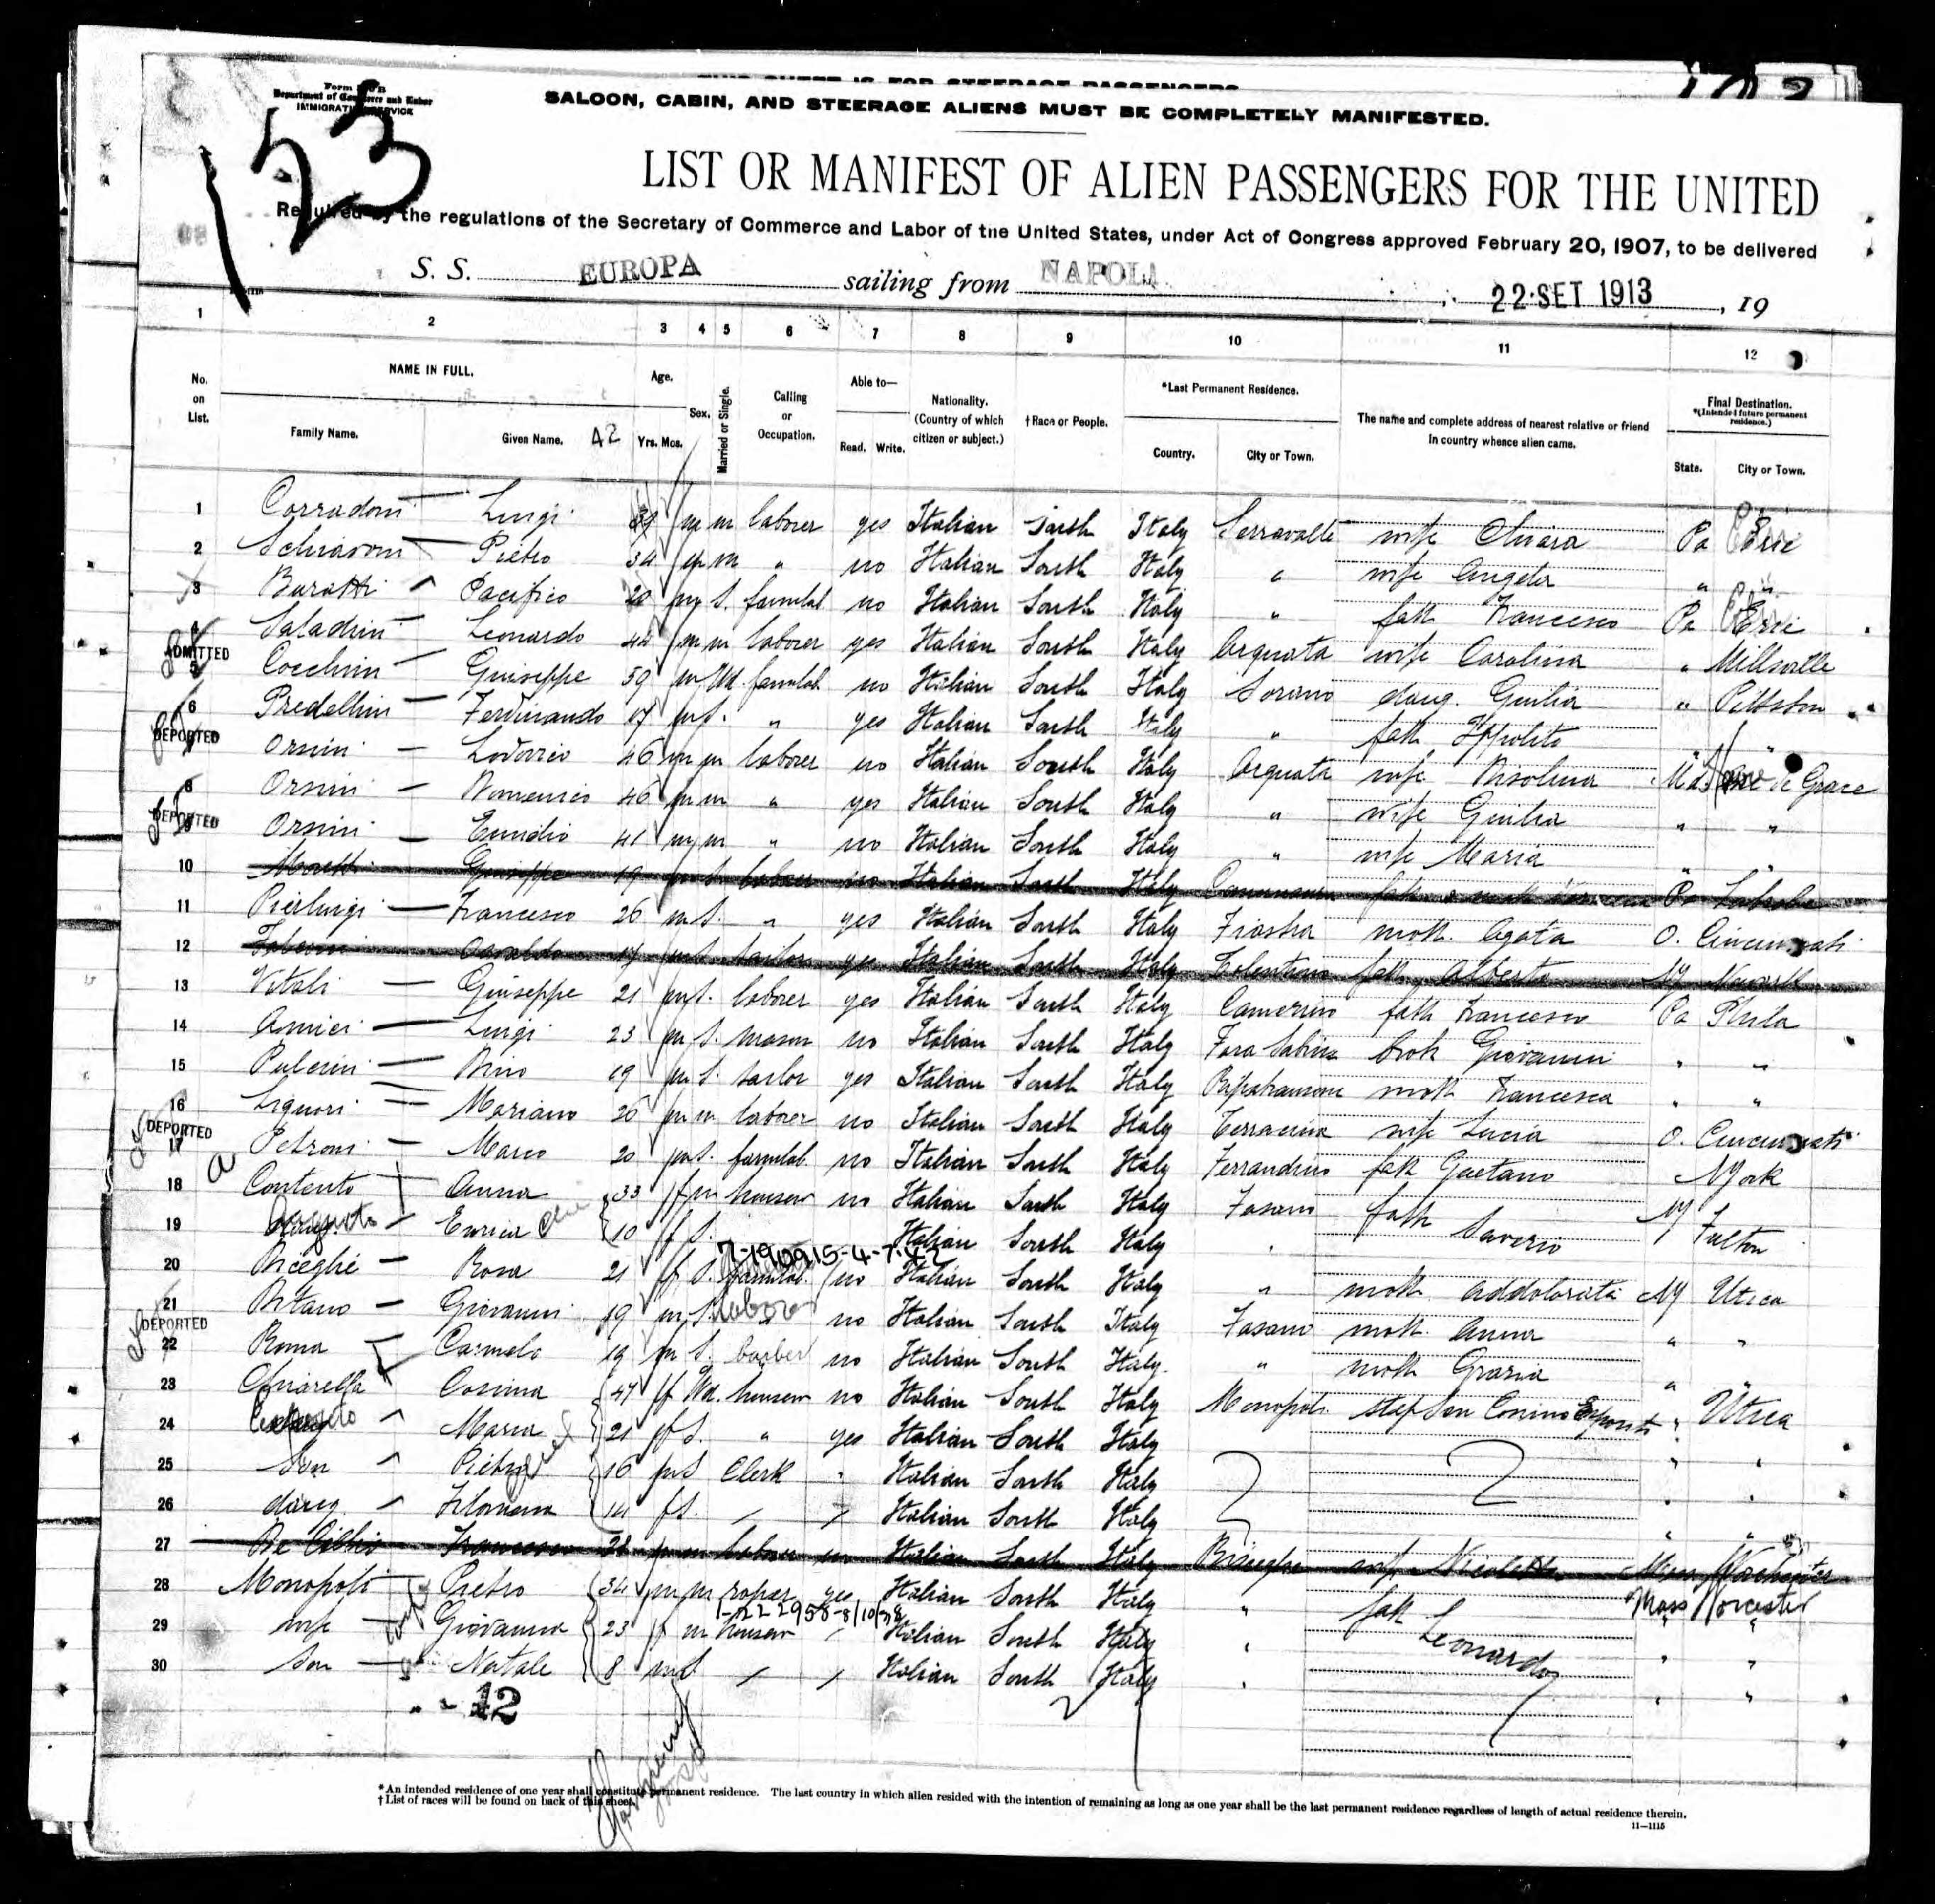 THIS SHEET IS FOR STEERAGE PASSENGERS
Form
Department of Commerce and Labor
IMMIGRATION SERVICE
SALOON, CABIN, AND STEERAGE ALIENS MUST BE COMPLETELY MANIFESTED.
LIST OR MANIFEST OF ALIEN PASSENGERS FOR THE UNITED
Required by the regulations of the Secretary of Commerce and Labor of the United States, under Act of Congress approved February 20, 1907, to be delivered
S. S. EUROPA sailing from NAPOLI 22·SET 1913, 19
1 2 3 4 5 6 7 8 9 10 11 12
No. on List.
NAME IN FULL.
Family Name. Given Name. 42
Age.
Yrs. Mos.
Sex.
Married or Single.
Calling or Occupation.
Able to—
Read. Write.
Nationality. (Country of which citizen or subject.)
†Race or People.
*Last Permanent Residence.
Country. City or Town.
The name and complete address of nearest relative or friend in country whence alien came.
Final Destination.
*(Intended future permanent residence.)
State. City or Town.
1 Corradoni Luigi m m laborer yes Italian South Italy Serravalle wife Chiara Pa Erie
2 Schiavoni Pietro 34 m m " no Italian South Italy " wife Angela " "
3 Buratti Pacifico 20 m s. farmlab no Italian South Italy " fath Francesco Pa Erie
4 Saladini Leonardo 44 m m laborer yes Italian South Italy Arquata wife Carolina " Millsville
ADMITTED
5 Cocchini Guiseppe 59 m Wd. farmlab no Italian South Italy Sorano daug. Giulia " Pittston
6 Predellini Ferdinando 17 m s. " yes Italian South Italy " fath Ippolito "
DEPORTED
7 Orsini Lodovico 46 m m laborer no Italian South Italy Arquata wife Md. Havre de Grace
8 Orsini Domenico 46 m m " yes Italian South Italy " wife Giulia " "
DEPORTED
9 Orsini Emidio 41 m m " no Italian South Italy " wife Maria " "
10 Moretti Giuseppe 19 m s. laborer no Italian South Italy Pa Latrobe
11 Pierluigi Francesco 26 m s. " yes Italian South Italy Fiastra moth. Agata O. Cincinnati
12 Osvaldo 17 m s. tailor yes Italian South Italy Tolentino fath Alberto NY
13 Vitali Giuseppe 21 m s. laborer yes Italian South Italy Camerino fath Francesco Pa Phila
14 Amici Luigi 23 m s. mason no Italian South Italy Fara Sabina broth Giovanni " "
15 Pulcini Nino 19 m s. tailor yes Italian South Italy Ripatransone moth Francesca " "
16 Liguori Mariano 26 m m laborer no Italian South Italy Terracina wife Lucia O. Cincinnati
DEPORTED
17 Petroni Marco 20 m s. farmlab. no Italian South Italy Ferrandina fath Gaetano NYork
18 Contento Anna 33 f m housew no Italian South Italy Fasano fath Saverio NY Fulton
19 Enrica 10 f s. Italian South Italy "
7-190915-4-7-42
20 Biceglie Rosa 21 f s. farmlab. no Italian South Italy " moth Addolorata NY Utica
21 Pitano Giovanni 19 m s. labor no Italian South Italy Fasano moth. Anna " "
DEPORTED
22 Roma Carmelo 19 m s. barber no Italian South Italy. " moth Grazia " "
23 Chiarella Cosima 47 f Wd. housew no Italian South Italy Monopoli step Son Cosimo Esposito " Utica
24 Maria 21 f s. " yes Italian South Italy " "
25 Son Pietro 16 m s Clerk " Italian South Italy " "
26 daug Filomena f s. Italian South Italy " "
27 Francesco m m laborer Italian South Italy Bisceglie wife Nicoletta Mass
28 Monopoli Pietro 34 m m yes Italian South Italy " fath Leonardo Mass Worcester
1-222958-8/10/38
29 wife Giovanna 23 f m housew Italian South Italy " " "
30 Son Natale 8 m s Italian South Italy " " "
12
*An intended residence of one year shall constitute permanent residence. The last country in which alien resided with the intention of remaining as long as one year shall be the last permanent residence regardless of length of actual residence therein.
†List of races will be found on back of this sheet.
11—1115